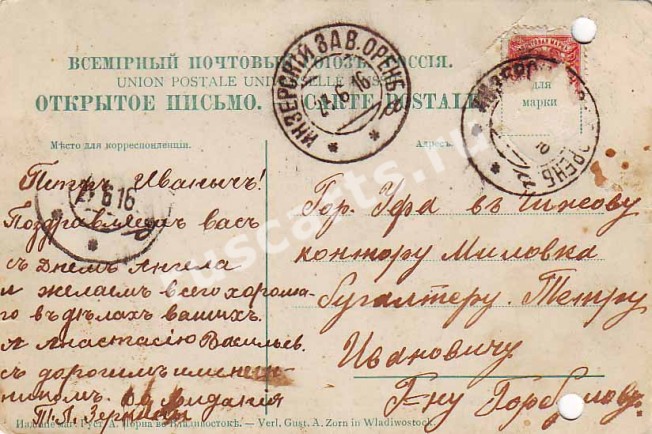 ВСЕМІРНЫЙ ПОЧТОВЫЙ СОЮЗЪ. РОССІЯ.
UNION POSTALE UNIVERSELLE RUSSIE
ОТКРЫТОЕ ПИСЬМО. CARTE POSTALE
ИНЗЕРСКІЙ ЗАВ. ОРЕНБ.
21 6 16
Мѣсто для корреспонденціи.
Адресъ.
для
марки
Петръ Иванычъ!
Поздравляемъ васъ
съ Днемъ Ангела
и желаемъ всего хороша-
го въ дѣлахъ вашихъ.
А Анастасію Васильев.
съ дорогимъ именин-
никомъ. свидания
П. Л. Зернины
21 6 16
Гор. Уфа въ Чижову
контору Миловка
бугалтеру. Петру
Ивановичу
Г-ну
Изданіе маг. Густ. А. Цорна въ Владивостокѣ. — Verl. Gust. A. Zorn in Wladiwostock.
ruscarts.ru